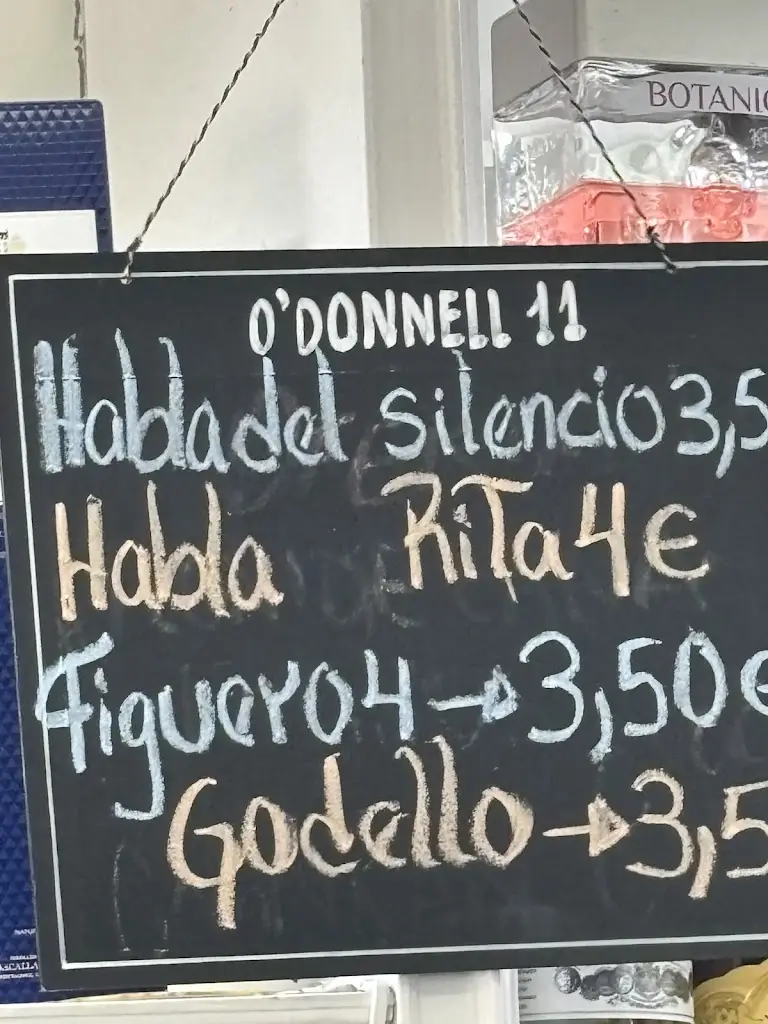 BOTANIC
O'DONNELL 11
Habla del silencio 3,5
Habla Rita 4€
Figuero 4→3,50€
Godello→3,5